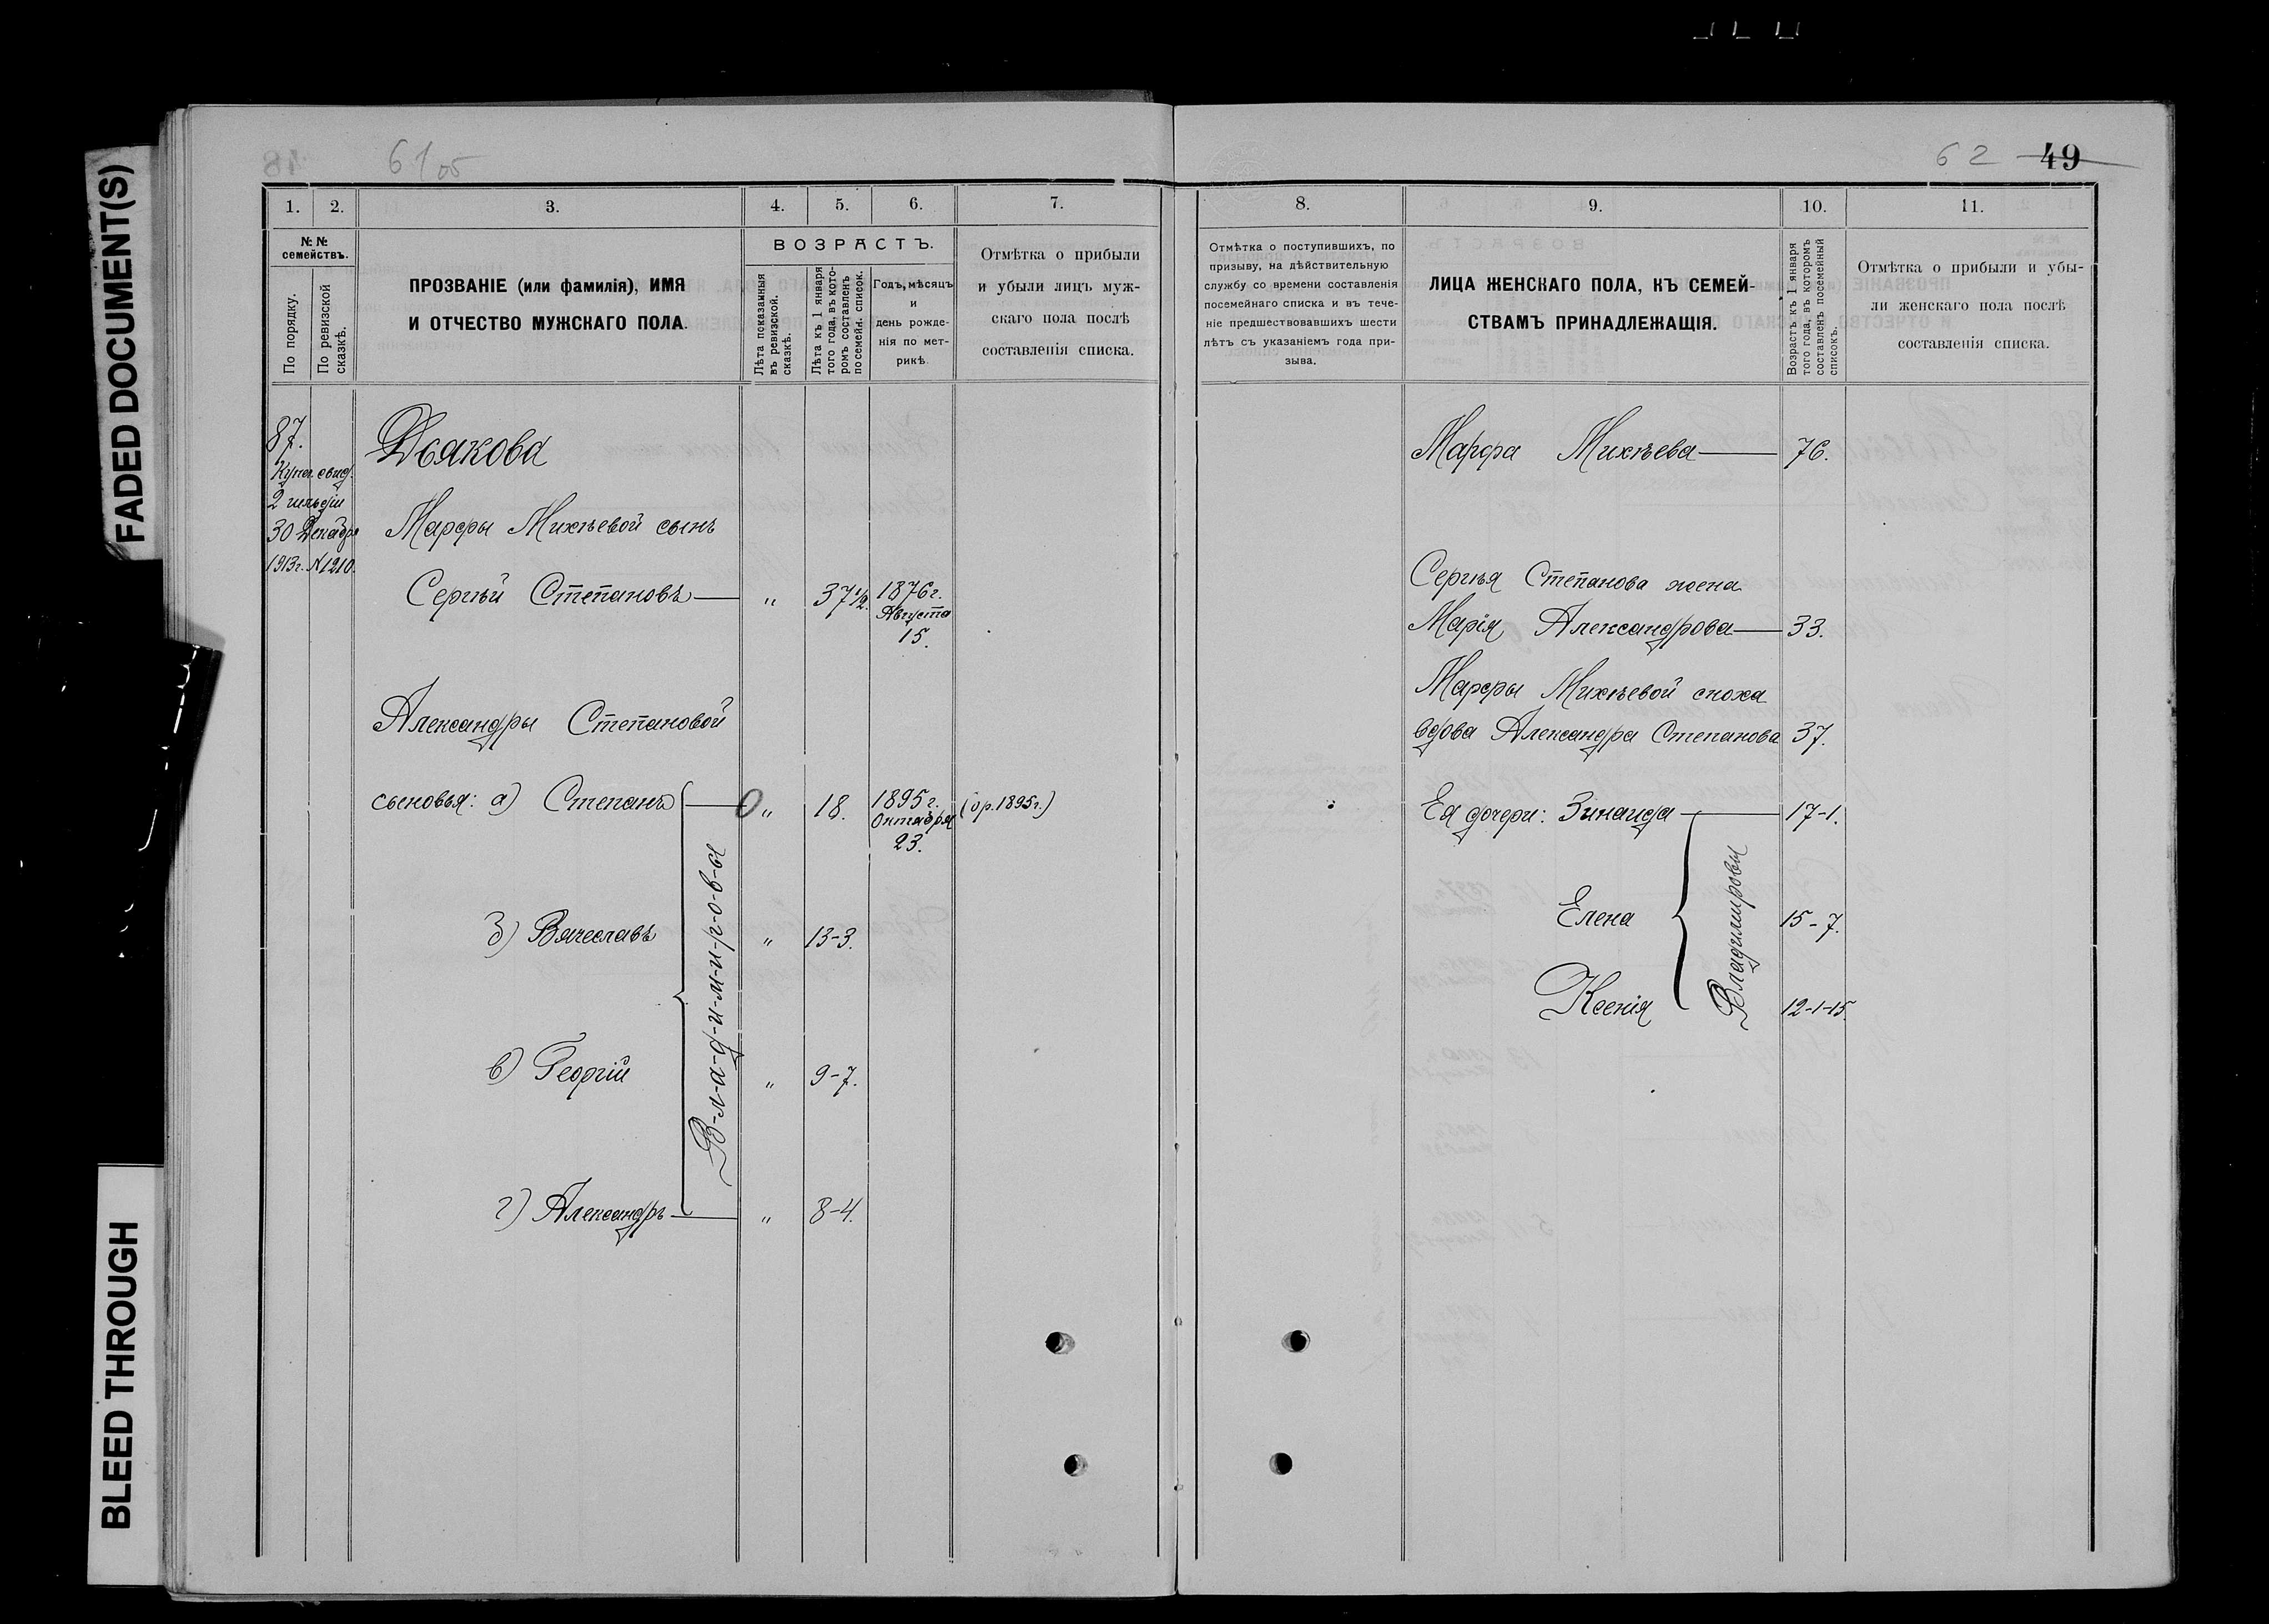 FADED DOCUMENT(S)
BLEED THROUGH
61/05
62 49
1. 2. 3. 4. 5. 6. 7.
№ №
семействъ.
По порядку.
По ревизской
сказкѣ.
ПРОЗВАНІЕ (или фамилія), ИМЯ
И ОТЧЕСТВО МУЖСКАГО ПОЛА.
ВОЗРАСТЪ.
Лѣта показанныя
въ ревизской.
сказкѣ.
Лѣта къ 1 января
того года, въ кото-
ромъ составленъ
посемейн. список.
Годъ, мѣсяцъ
и
день рожде-
нія по мет-
рикѣ
Отмѣтка о прибыли
и убыли лицъ муж-
скаго пола послѣ
составленія списка.
87.
Купеч. свид.
2 гильдіи
30 Декабря
1913г. № 1210.
Дьякова
Марфы Михѣевой сынъ
Сергѣй Степановъ — " 37½. 1876г.
Августа
15.
Александры Степановой
сыновья: а) Степанъ — " 18. 1895г. (ор. 1895г.)
Октября
23.
б) Вячеславъ " 13-3.
в) Георгій " 9-7.
г) Александръ — " 8-4.
В-л-а-д-и-м-и-р-о-в-ы
8. 9. 10. 11.
Отмѣтка о поступившихъ, по
призыву, на дѣйствительную
службу со времени составленія
посемейнаго списка и въ тече-
ніе предшествовавшихъ шести
лѣтъ съ указаніемъ года при-
зыва.
ЛИЦА ЖЕНСКАГО ПОЛА, КЪ СЕМЕЙ-
СТВАМЪ ПРИНАДЛЕЖАЩІЯ.
Возрастъ къ 1 января
того года, въ которомъ
составленъ посемейный
списокъ.
Отмѣтка о прибыли и убы-
ли женскаго пола послѣ
составленія списка.
Марфа Михѣева — 76.
Сергѣя Степанова жена
Марія Александрова — 33.
Марфы Михѣевой сноха
вдова Александра Степанова 37.
Ея дочери: Зинаида — 17-1.
Елена 15-7.
Ксенія 12-1-15.
Владимировы